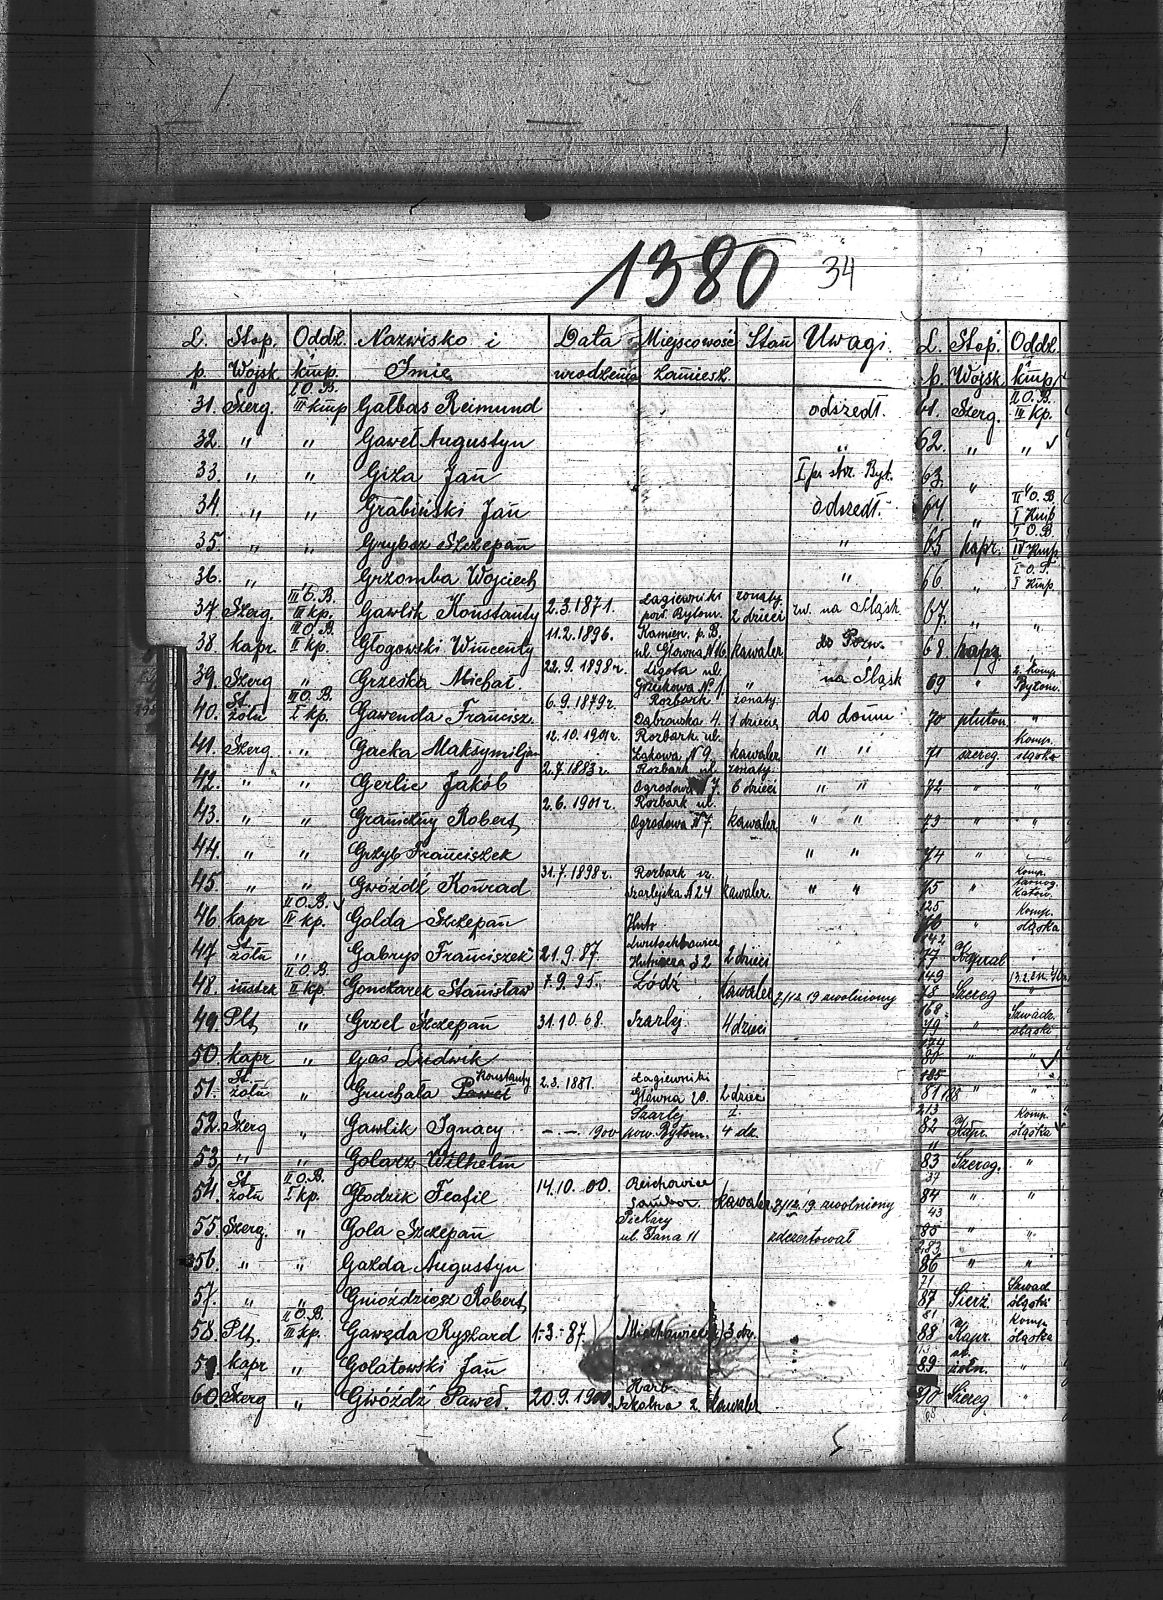 1380 34
L. Stop. Oddz. Nazwisko i Data Miejscowość Stan Uwagi.
p. Wojsk i kmp. Imię urodzenia zamieszk.
I O.B.
31. Szerg. III kmp Gałbas Reimund odszedł.
32. " " Gaweł Augustyn "
33. " " Giża Jan I p. strz. Byt.
34 " " Grabiński Jan odszedł.
35. " " Grybsz Szczepan "
36. " " Grzomba Wojciech "
III O.B. Łagiewniki żonaty.
37. Szerg. III kp. Gawlik Konstanty 2.3.1871. pow. Bytom. 2 dzieci zw. na Śląsk
III O.B. Kamien. p. B.
38 kapr. I kp. Głogowski Wincenty 11.2.1896. ul. Głowna N 16 kawaler do Pozn.
22.9.1898r. Ligota ul.
39. Szerg " Grześka Michał. N 1. " na Śląsk
St. III O.B. Rozbark żonaty.
40. żołn I kp. Gawenda Francisz. 6.9.1879r. Dąbrowska 4. 1 dziecię do domu
12.10.1901r. Rozbark ul.
41. Szerg. " Gacka Maksymiljan Łąkowa N 9. kawaler " "
2.7.1883r. Rozbark ul. żonaty
42. " " Gerlic Jakób Ogrodowa N 7. 6 dzieci " "
2.6.1901r. Rozbark ul.
43. " " Graniczny Robert Ogrodowa N 7. kawaler " "
44. " " Grzyb Franciszek " "
31.7.1898r. Rozbark
45. " " Gwóźdź Konrad Szarlejska N 24 kawaler. " "
II O.B.
46 kapr IV kp. Golda Szczepan Huta
St.
47. żołn " Gabryś Franciszek 21.9.87. 32 2 dzieci
II O.B.
48. II kp. Gonczarek Stanisław 7.9.95. Łódź kawaler 2/12.19 zwolniony
49. Plt. " Grzel Szczepan 31.10.68. Szarlej 4 dzieci
50. kapr " Gaś Ludwik
St. Konstanty Łagiewniki
51. żołn " Gruchała Paweł 2.3.1881. Główna 20. 2 dzieci
Szarlej ż.
52. Szerg " Gawlik Ignacy -.-. 1900 pow. Bytom. 4 dz.
53. " " Golarz Wilhelm
St. II O.B.
54. żołn I kp. Głodzik Teafil 14.10.00. kawaler 2/12.19 zwolniony
Piekary
55. Szerg. " Gola Szczepan ul. Jana 11 zdezertował
56. " " Gazda Augustyn
57. " " Gnioździosz Robert
II O.B.
58. Plt. III kp. Gawzda Ryszard 1.3.87. Miechowice 3 dz.
59. kapr " Golatowski Jan
Karb
60. Szerg " Gwóźdź Paweł. 20.9.1900. Szkolna 2. kawaler
L. Stop. Oddz.
p. Wojsk i kmp
II O.B.
61. Szerg. III kp.
62. " "
63. "
II O.B.
64 " I kmp
I O.B.
65 kapr. IV kmp
I O.B.
66 I kmp.
67. " "
68. kapr. "
2. komp.
69 " Bytom.
70 pluton. "
komp.
71 szereg. śląska
72 " "
73 " "
74 "
komp.
75 "
125 komp.
76 " śląska
142
77 Kapral "
149
78 Szereg "
168 Szwadr.
79 " śląski
174
80 " "
185
81 " "
213 komp.
82 Kapr. śląska
83 Szereg. "
37
84 " "
43
85 " "
283
86 " "
21 Szwad.
87 Sierż. śląski
81 komp.
88 Kapr. śląska
st.
89 żołn. "
90 Szereg. "
68